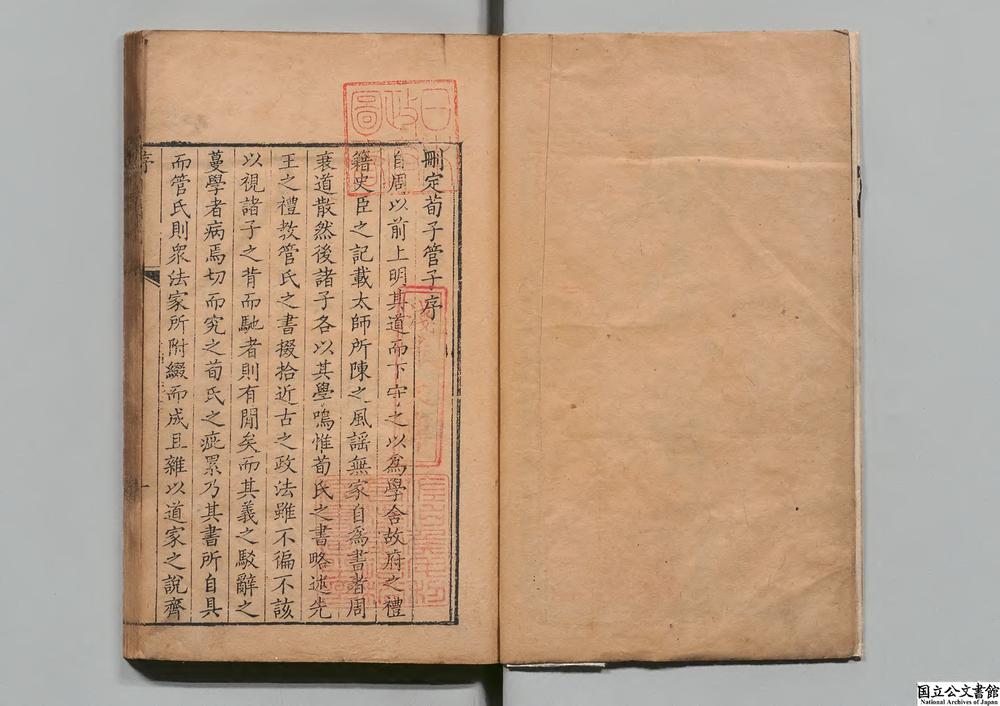 刪定荀子管子序
自周以前上明其道而下守之以爲學舍故府之禮
籍史臣之記載太師所陳之風謡無家自爲書者周
衰道散然後諸子各以其學鳴惟荀氏之書略述先
王之禮敎管氏之書掇拾近古之政法雖不徧不該
以視諸子之背而馳者則有閒矣而其義之駁辭之
蔓學者病焉切而究之荀氏之疵累乃其書所自具
而管氏則衆法家所附綴而成且雜以道家之說齊
序
一
国立公文書館
National Archives of Japan